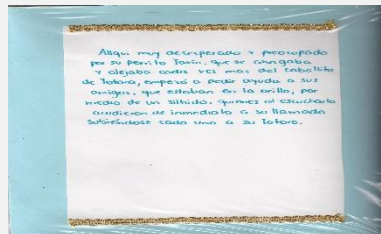 Allqu muy desesperado y preocupado
por su perrito Tavin, que se ahogaba
y alejaba cada vez más del Caballito
de Totora, empezó a pedir ayuda a sus
amigos, que estaban en la orilla, por
medio de un silbido, quienes al escucharlo
acudieron de inmediato a su llamado
subiéndose cada uno a su Totora.